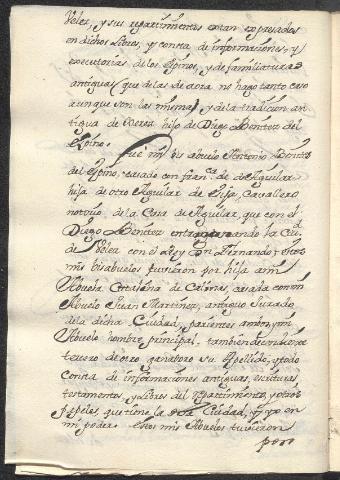 Velez, y sus repartimientos estan expresados
en dichos Libros, y consta de informaciones, y
executorias de los Espinos, y de familiaturas
antiguas que de las de aora no hago tanto caso
aunque son las mismas, y de la tradicion an
tigua de hijo de Diego Benitez del
Espino.
Fué mi bis abuelo Antonio Benitez
del Espino, casado con fran.ca de Aguilar
hija de otro Aguilar de Cavallero
notorio de la Casa de Aguilar, que con el
Diego Benitez ganando la Ciu.d
de Velez con el Rey Don Fernando: Estos
mis bisabuelos tuvieron por hija a mi
Abuela Catalina de casada con mi
Abuelo Juan Martinez, antiguo Jurado
de la dicha Ciudad, parientes ambos y mi
Abuelo hombre principal, tambien descendiente
de su Apellido, y todo
consta de informaciones antiguas, escrituras
testamentos, y Libros del repartimiento, y otros
papeles que tiene la Ciudad, y yo en
mi poder. Estos mis Abuelos tuvieron
por